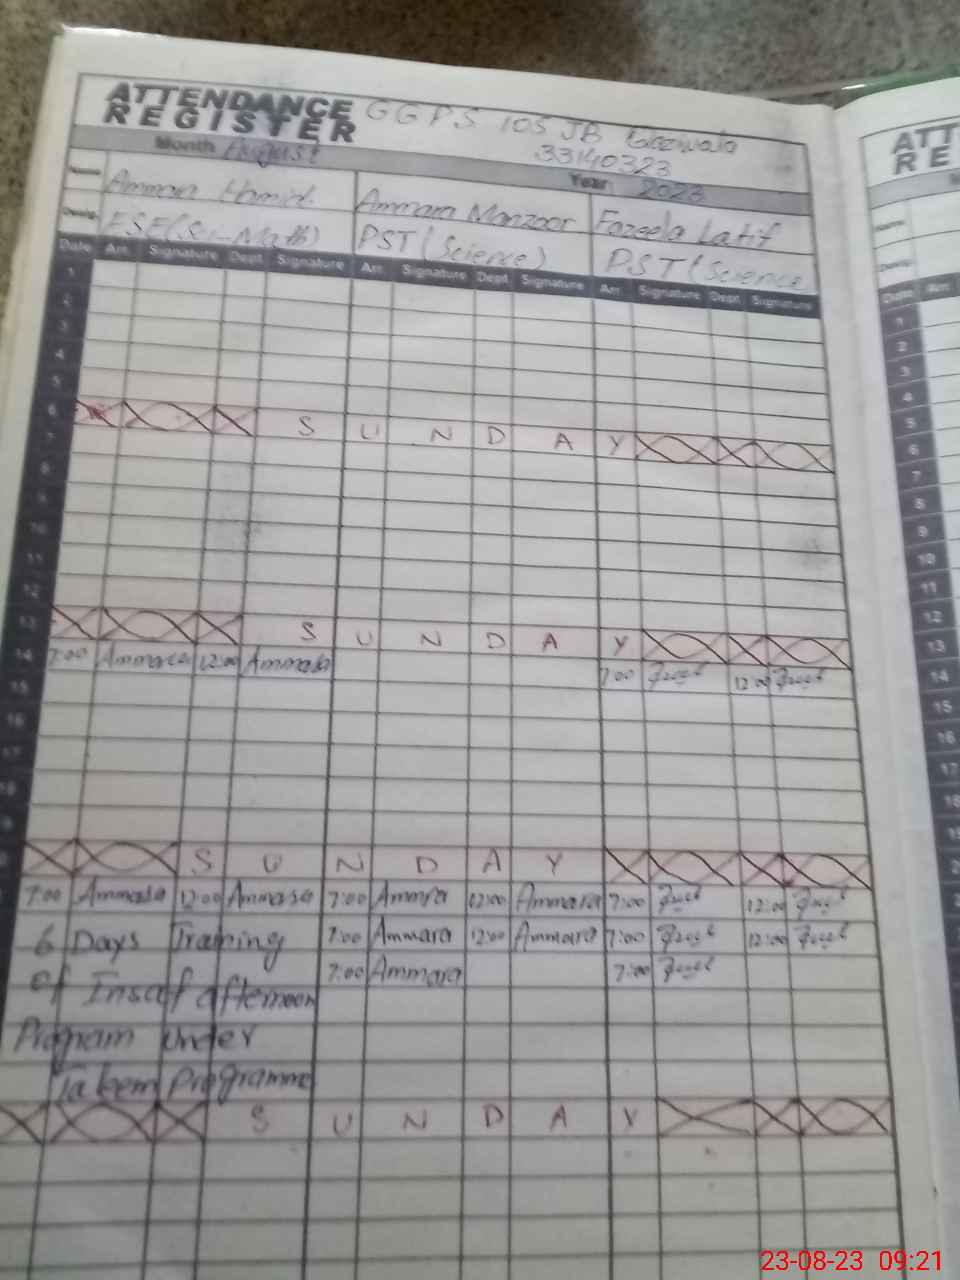 ATTENDANCE REGISTER GGPS 105 JB
33140323
Month August Year 2023
Name Hamid Ammara Manzoor Fazeela Latif
ESE(Sci-Math) PST (Science) PST (Science
Date Arr. Signature Dept Signature Arr. Signature Dept Signature Arr. Signature Dept Signature
1
2
3
4
5
6 SUNDAY
7
8
9
10
11
12
13 SUNDAY
14 7:00 12:00 7:00 12:00
15
16
17
18
SUNDAY
7:00 12:00 7:00 12:00 Ammara 7:00 12:00
6 Days Training 7:00 Ammara 12:00 Ammara 7:00 12:00
7:00 Ammara 7:00
Of Insaf afternoon
Program under
Taleem Programme
SUNDAY
ATT
RE
Date Arr.
1
2
3
4
5
6
7
8
9
10
11
12
13
14
15
16
17
18
19
23-08-23 09:21